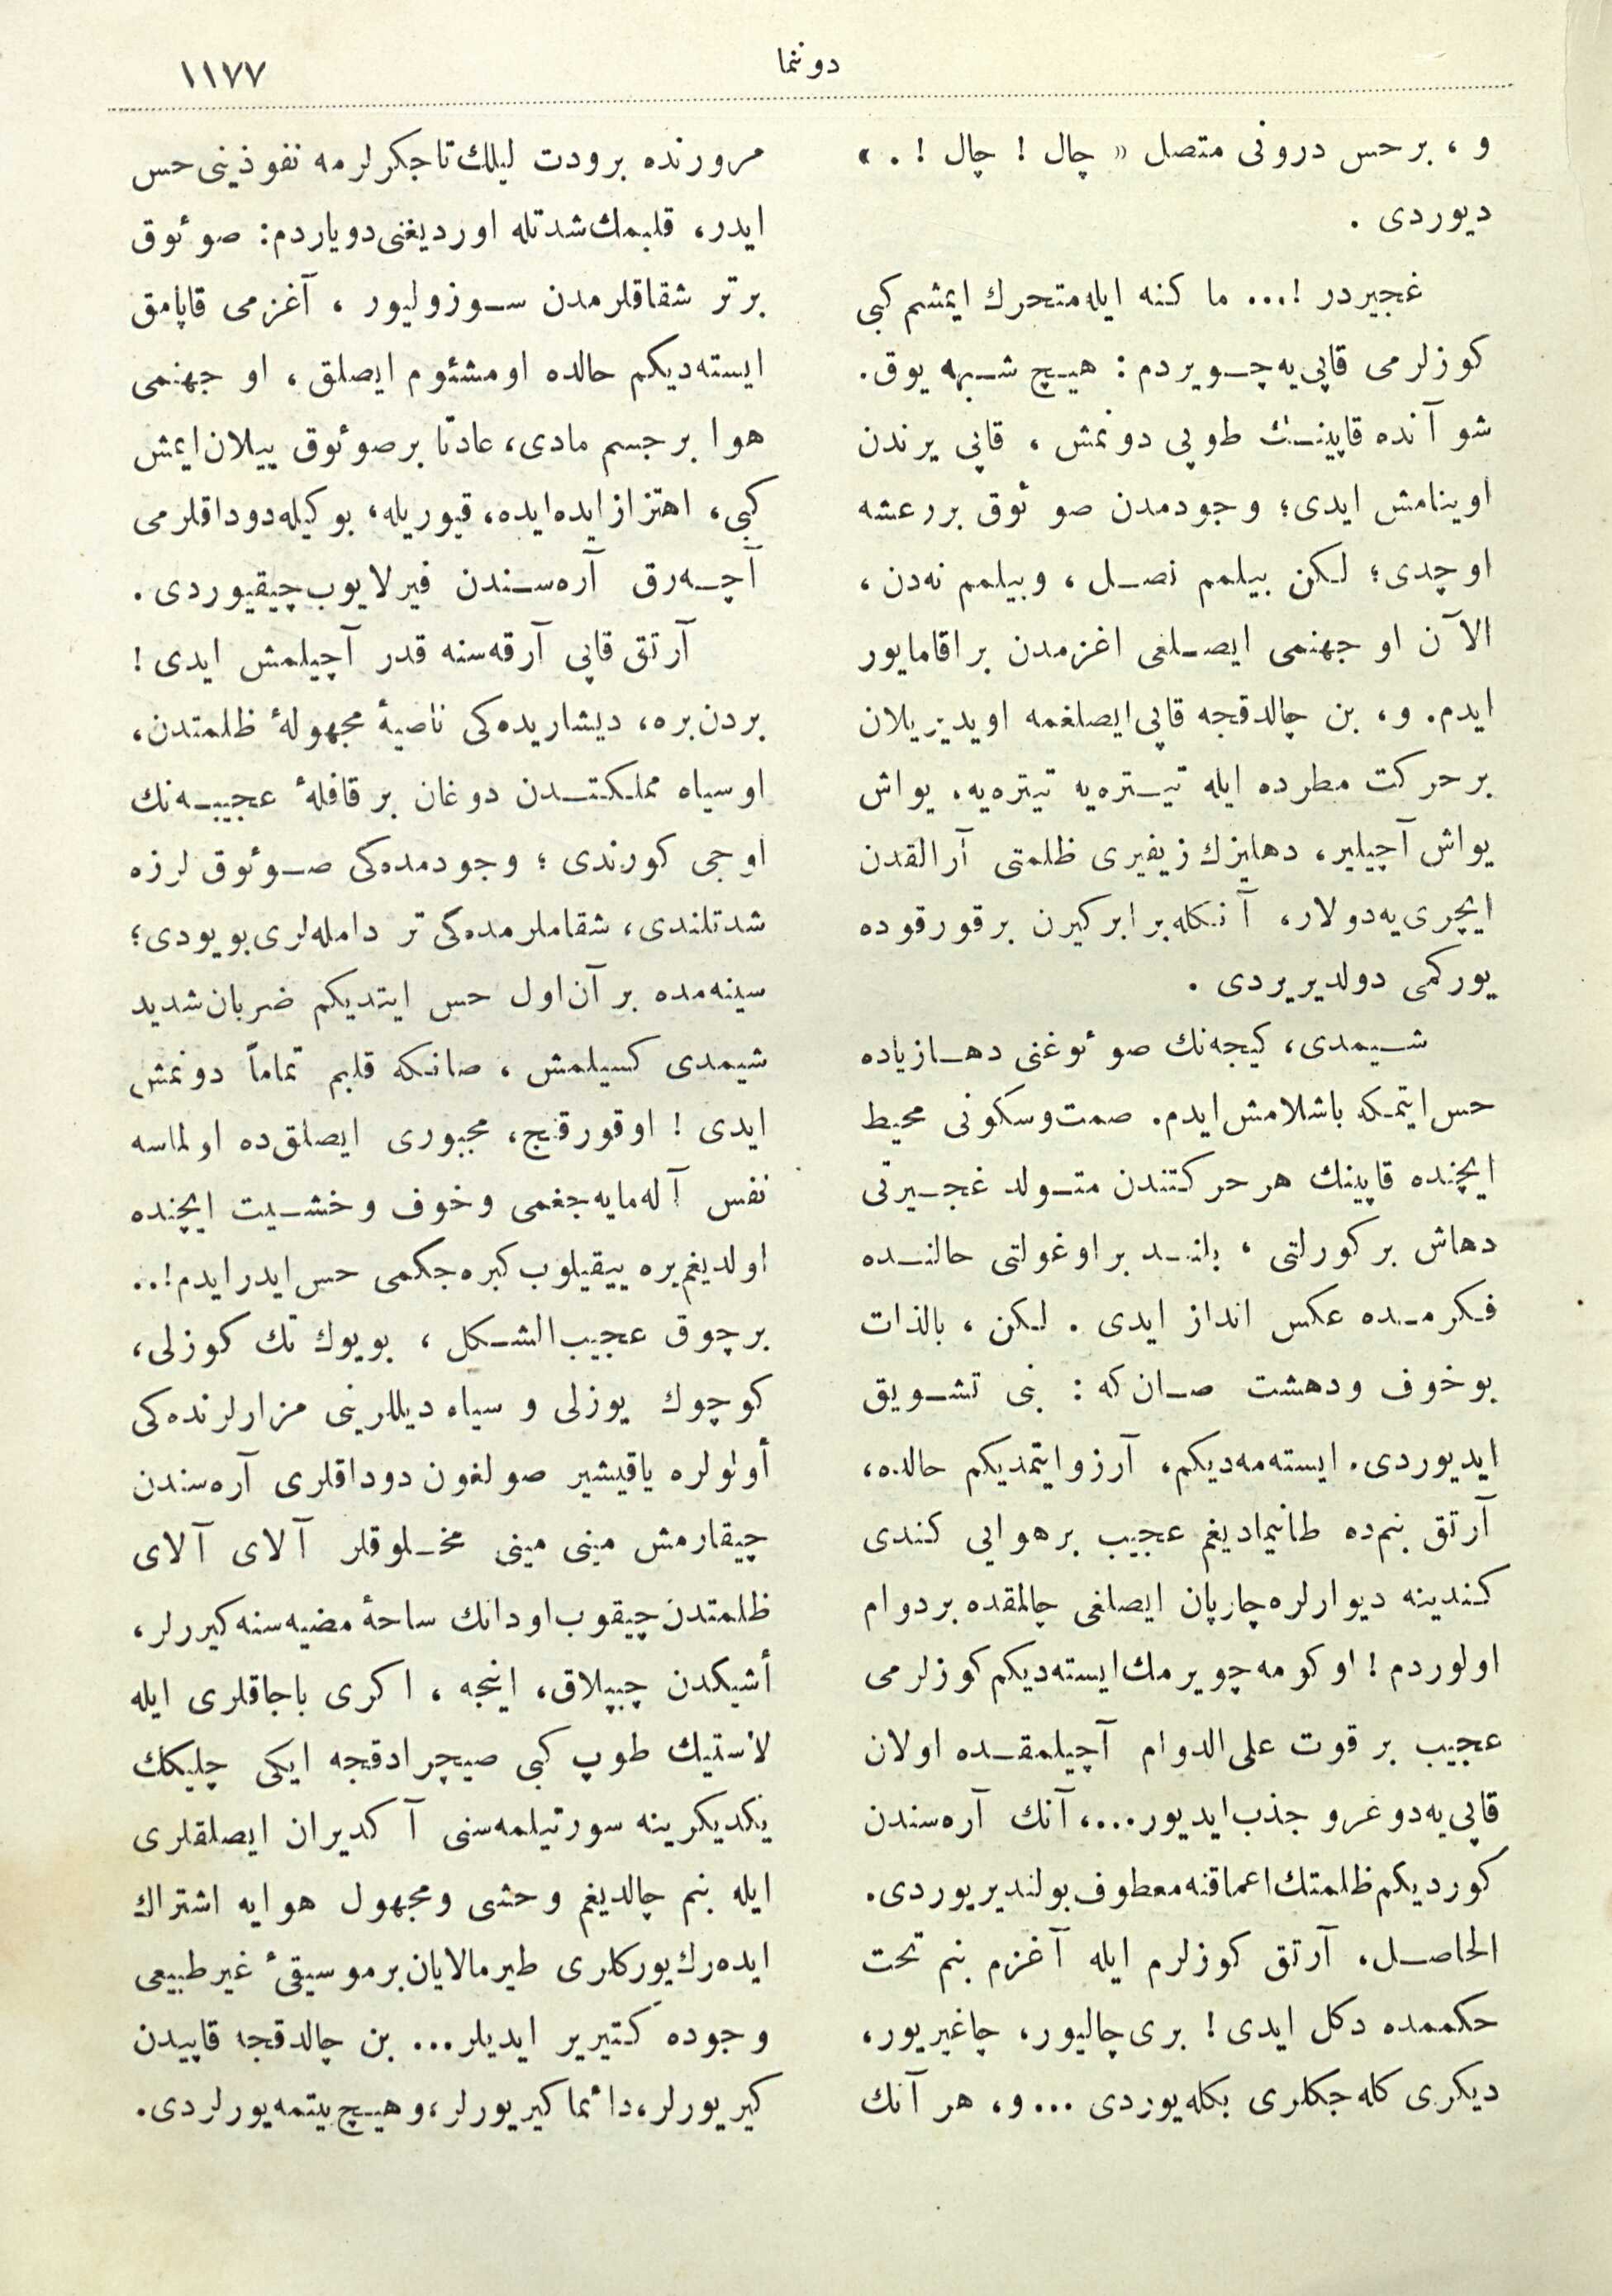 دوننما
١١٧٧
و ، برحس درونی متصل « چال ! چال ! . »
دیوردی .
غجیردر !... ما كنه ایله متحرك ایمشم كبی
كوزلرمی قاپی‌یه چـویردم : هیـچ شـبهه یوق.
شو آنده قاپینـك طوپی دونمش ، قاپی یرندن
اوینامش ایدی؛ وجودمدن صوئوق بررعشه
اوچدی؛ لكن بیلمم نصـل ، وبیلمم نه‌دن ،
الآن او جهنمی ایصـلغی اغزمدن براقامایور
ایدم. و، بن چالدقجه قاپی‌ایصلغمه اویدیریلان
برحركت مطرده ایله تیـتره‌یه تیتره‌یه، یواش
یواش آچیلیر، دهلیزك زیفیری ظلمتی آرالقدن
ایچری‌یه‌دولار، آنكله‌برابركیرن برقورقوده
یوركمی دولدیریردی .
شـیمدی، كیجه‌نك صوئوغنی دهـازیاده
حس‌ایتمكه باشلامش‌ایدم. صمت‌وسكونی محیط
ایچنده قاپینك هرحركتندن متـولد غجـیرتی
دهاش بر كورلتی ، بلنـد براوغولتی حالنـده
فكرمـده عكس انداز ایدی . لكن ، بالذات
بوخوف ودهشت صـان‌كه : بنی تشـویق
ایدیوردی. ایسته‌مه‌دیكم، آرزوایتمدیكم حالده،
آرتق بنم‌ده طانیمادیغم عجیب برهوایی كندی
كندینه دیوارلره‌چارپان ایصلغی چالمقده بردوام
اولوردم ! اوكومه‌چویرمك‌ایسته‌دیكم كوزلرمی
عجیب بر قوت علی‌الدوام آچیلمقـده اولان
قاپی‌یه‌دوغرو جذب‌ایدیور...، آنك آره‌سندن
كوردیكم ظلمتك‌اعماقنه‌معطوف‌بولندیریوردی.
الحاصـل. آرتق كوزلرم ایله آغزم بنم تحت
حكممده دكل ایدی ! بری‌چالیور، چاغیریور،
دیكری كله‌جكلری بكله‌یوردی ...و، هر آنك
مرورنده برودت لیلك‌تاجكرلرمه نفوذینی‌حس
ایدر، قلبمك‌شدتله اوردیغنی‌دویاردم: صوئوق
برتر شقاقلرمدن سـوزولیور ، آغزمی قاپامق
ایسته‌دیكم حالده اومشئوم ایصلق ، او جهنمی
هوا برجسم مادی، عادتا برصوئوق ییلان‌ایمش
كبی، اهتزازایده‌ایده، قیوریله، بوكیله‌دوداقلرمی
آچـه‌رق آره‌سـندن فیرلایوب‌چیقیوردی.
آرتق قاپی آرقه‌سنه قدر آچیلمش ایدی !
بردن‌بره، دیشاریده‌كی ناصیهٔ مجهولهٔ ظلمتدن،
اوسیاه مملكتـدن دوغان برقافلهٔ عجیبـه‌نك
اوجی كورندی ؛ وجودمده‌كی صـوئوق لرزه
شدتلندی، شقاملرمده‌كی تر دامله‌لری‌بویودی؛
سینه‌مده بر آن‌اول حس ایتدیكم ضربان‌شدید
شیمدی كسیلمش ، صانكه قلبم تماماً دونمش
ایدی ! اوقورقنج، مجبوری ایصلق‌ده اولماسه
نفس آله‌مایه‌جغمی وخوف وخشـیت ایچنده
اولدیغم‌یره ییقیلوب كبره‌جكمی حس‌ایدرایدم!..
برچوق عجیب‌الشـكل ، بویوك تك كوزلی،
كوچوك یوزلی و سیاه دیللرینی مزارلرنده‌كی
أولولره یاقیشیر صولغون دوداقلری آره‌سندن
چیقارمش مینی مینی مخـلوقلر آلای آلای
ظلمتدن‌چیقوب‌اودانك ساحهٔ‌مضیه‌سنه‌كیررلر،
أشیكدن چیپلاق، اینجه ، اكری باجاقلری ایله
لاستیك طوپ كبی صیچرادقجه ایكی چلیكك
یكدیكرینه سورتیلمه‌سنی آكدیران ایصلقلری
ایله بنم چالدیغم وحشی ومجهول هوایه اشتراك
ایده‌رك‌یوركلری طیرمالایان‌برموسیقیٔ غیرطبیعی
وجوده كتیریر ایدیلر... بن چالدقجه قاپیدن
كیریورلر،دائماكیریورلر،وهیـچ‌بیتمه‌یورلردی.